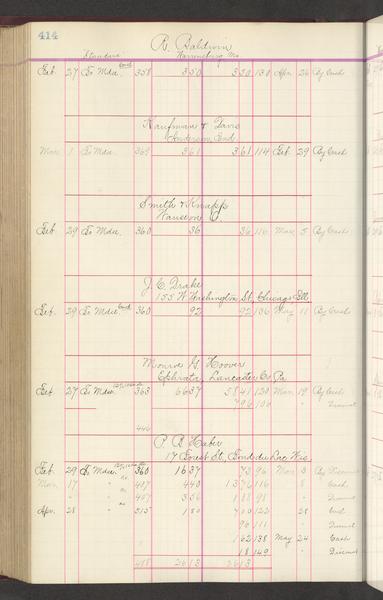 414
R. Baldwin
Standard Harrisburg Mo.
Feb. 27 To Mdse. 358 350 350 130 Apr. 26 By Cash
Kaufman & Davis
Anderson Ind.
Mar. 1 To Mdse. 369 361 361 114 Feb. 29 By Cash
Smith & Knapp
Wauseon O.
Feb. 29 To Mdse. 360 36 36 116 Mar. 5 By Cash
J. C. Drake
155 W Washington St. Chicago Ill.
Feb. 29 To Mdse 360 92 92 136 May 11 By Cash
Monroe G. Hoover
Ephrata, Lancaster Co. Pa
Feb. 27 To Mdse 363 6637 5841 120 Mar. 19 By Cash
796 106 " Discount
446
P. B. Haber
17 Forest St. Fond du Lac Wis
Feb. 29 To Mdse 360 1637 73 96 Mar. 3 By Discount
Mar. 17 " " 437 440 1376 116 " 8 " Cash
" " " 457 356 188 98 " " Discount
Apr. 28 " " 515 180 700 122 28 Cash
96 111 " Discount
162 138 May 24 Cash
18 149 " " Discount
488 2613 2613